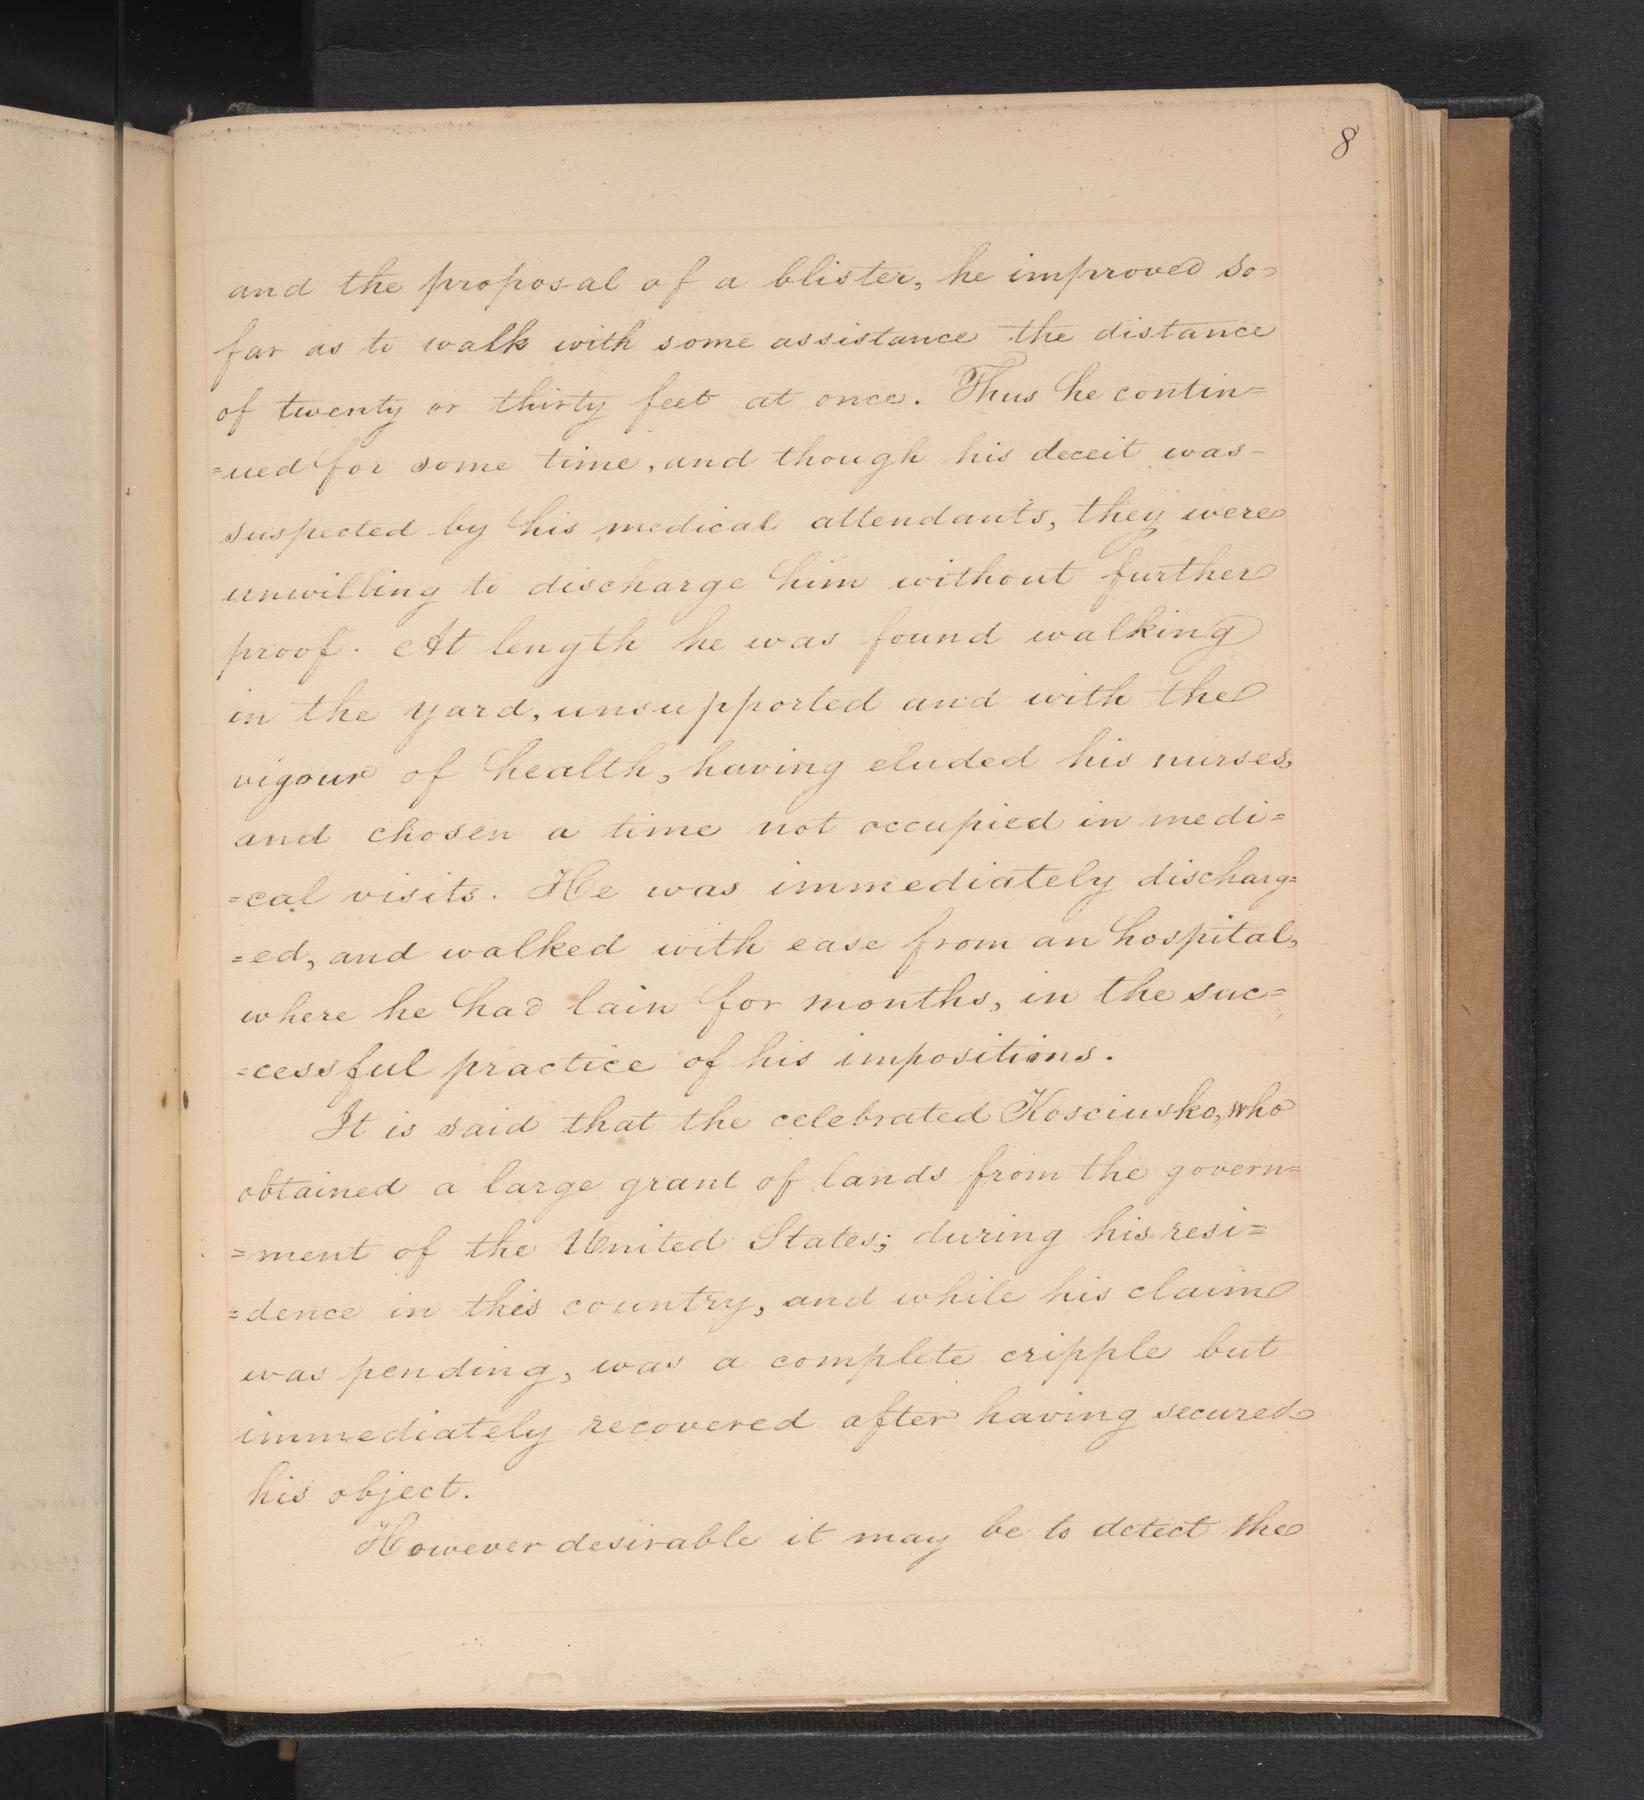 8
and the proposal of a blister, he improved so
far as to walk with some assistance the distance
of twenty or thirty feet at once. Thus he contin=
=ued for some time, and though his deceit was
suspected by his medical attendants, they were
unwilling to discharge him without further
proof. At length he was found walking
in the yard, unsupported and with the
vigour of health, having eluded his nurses,
and chosen a time not occupied in medi=
=cal visits. He was immediately discharg=
=ed, and walked with ease from an hospital,
where he had lain for months, in the suc=
=cessful practice of his impositions.
It is said that the celebrated Kosciusko, who
obtained a large grant of lands from the govern=
=ment of the United States; during his resi=
=dence in this country, and while his claim
was pending, was a complete cripple but
immediately recovered after having secured
his object.
However desirable it may be to detect the